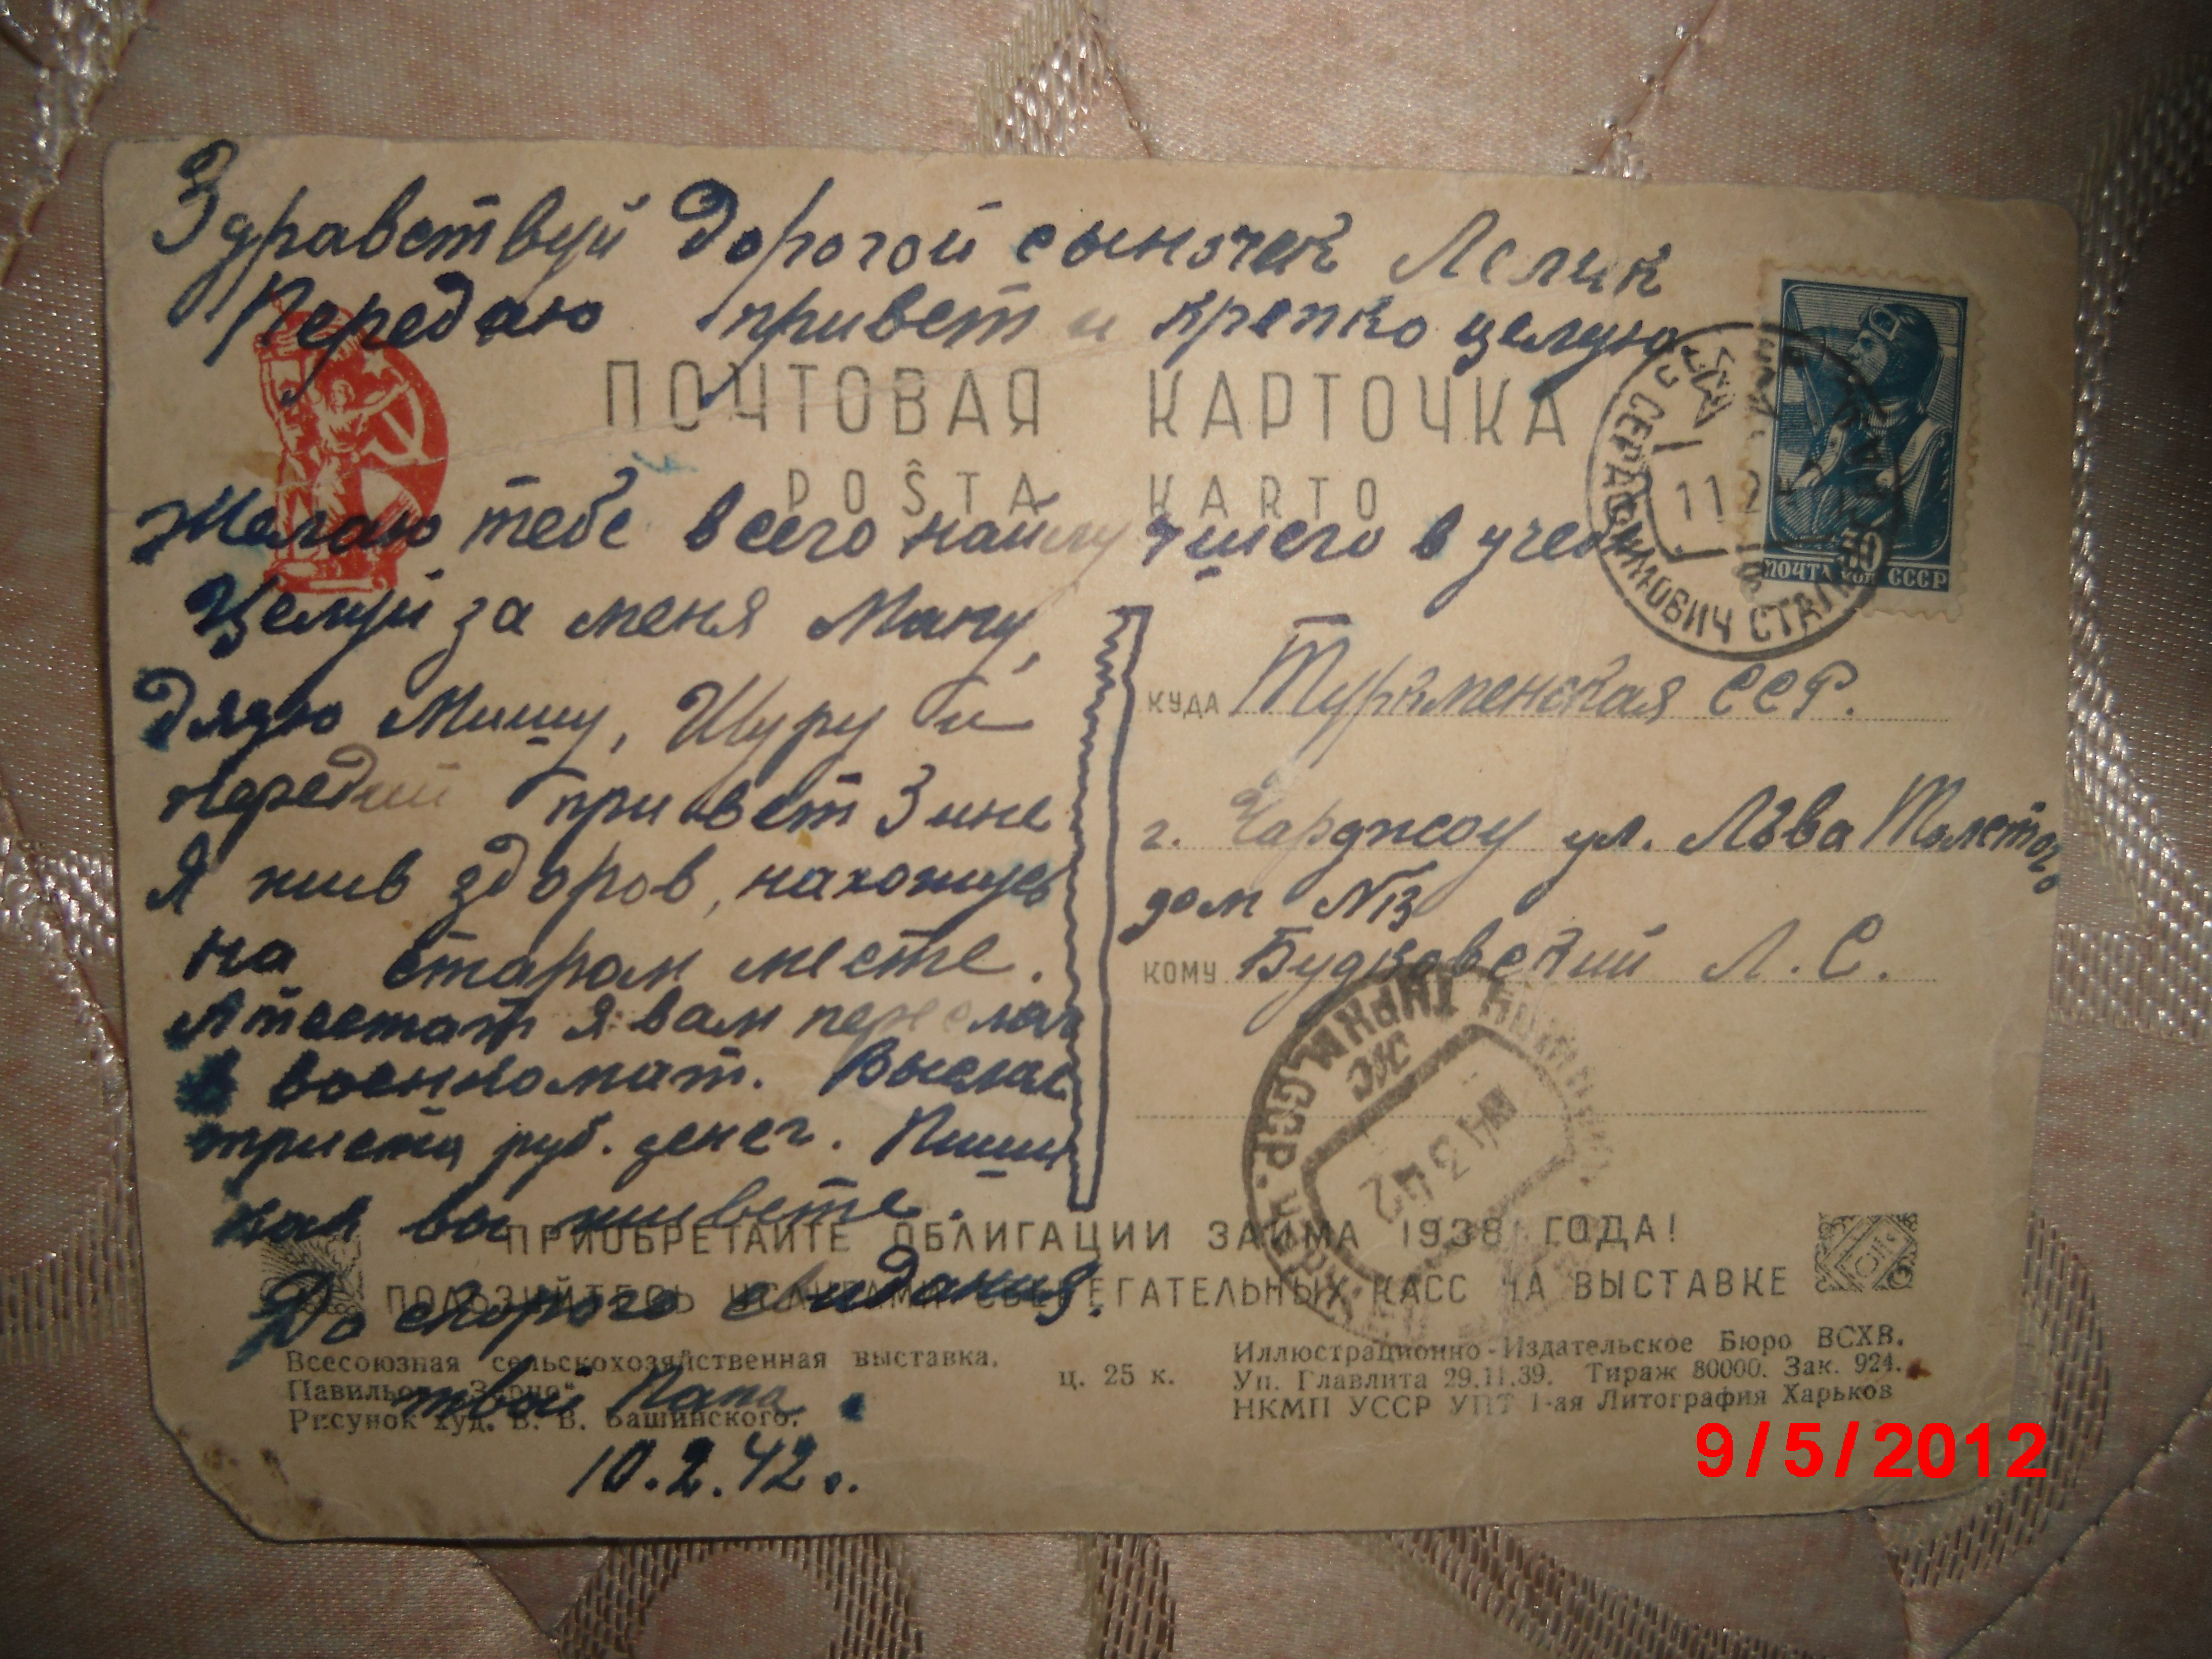 Здравствуй дорогой сыночек Лелик
Передаю привет и крепко целую
ПОЧТОВАЯ КАРТОЧКА
POŜTA KARTO
Желаю тебе всего наилучшего в учебе
Целуй за меня Маму,
дядю Мишу, Шуру и
передай привет Зине
Я жив здоров, нахожусь
на старом месте.
Атестат я вам переслал
в военкомат. Выслал
триста руб. денег. Пиши
как вы живете.
До скорого свидания.
твой Папа.
10.2.42г.
СЕРАФИМОВИЧ СТАЛИН
11 2
30
ПОЧТА КОП СССР
КУДА Туркменская ССР.
г. Чарджоу ул. Льва Толстого
дом №13
КОМУ Будковский Л. С.
ТУРКМ.ССР
4 3 42
ПРИОБРЕТАЙТЕ ОБЛИГАЦИИ ЗАЙМА 1938 ГОДА!
ПОЛЬЗУЙТЕСЬ УСЛУГАМИ СБЕРЕГАТЕЛЬНЫХ КАСС НА ВЫСТАВКЕ
Всесоюзная сельскохозяйственная выставка.
Павильон „Зерно"
Рисунок худ. В. В. Башинского.
ц. 25 к.
Иллюстрационно-Издательское Бюро ВСХВ.
Уп. Главлита 29.11.39. Тираж 80000. Зак. 924.
НКМП УССР УПТ 1-ая Литография Харьков
9/5/2012